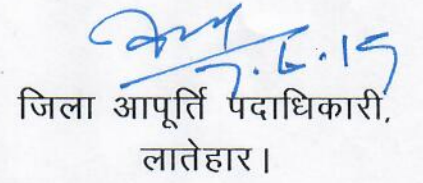 7.6.19
जिला आपूर्ति पदाधिकारी,
लातेहार।